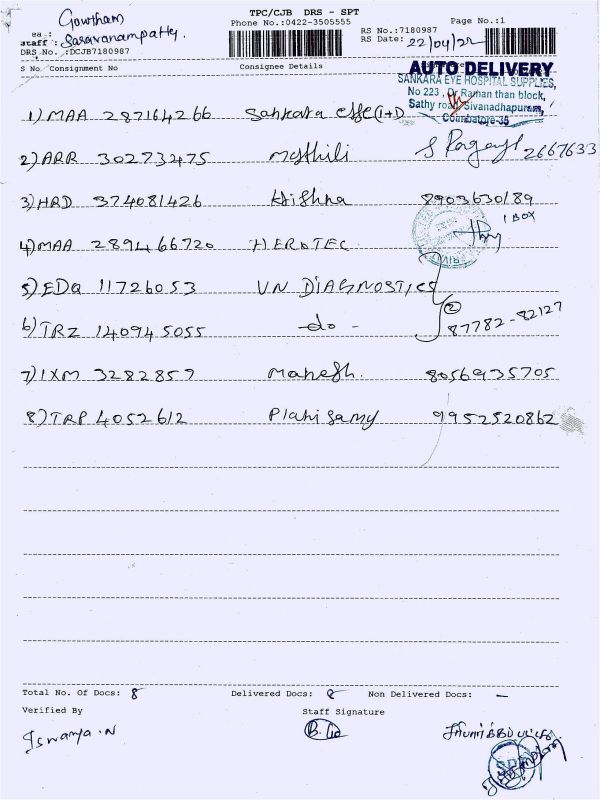 TPC/CJB DRS - SPT
Gowtham
Phone No.:0422-3505555 Page No.:1
ea :
RS No.:7180987
staff : Saravanampatty.
RS Date: 22/04/22
DRS No. :DCJB7180987
S No Consignment No Consignee Details
AUTO DELIVERY
SANKARA EYE HOSPITAL SUPPLIES,
No 223 , Dr Raman than block,
Sathy road, Sivanadhapuram,
Coimbatore-35
1) MAA 287164266 Sankara
2) ARR 302732475 2667633
3) HRD 374081426 Krishna 8903630189
1 BOX
4) MAA 289466720 HEROTEC
5) EDQ 11726053 VN DIAGNOSTICS
6) TRZ 140945055 -do- 2 87782-82127
7) IXM 3282857 Mahesh. 8056935705
8) TRP 4052612 Planisamy 9952520862
Total No. Of Docs: 8 Delivered Docs: 8 Non Delivered Docs: —
Verified By Staff Signature
Iswarya.N